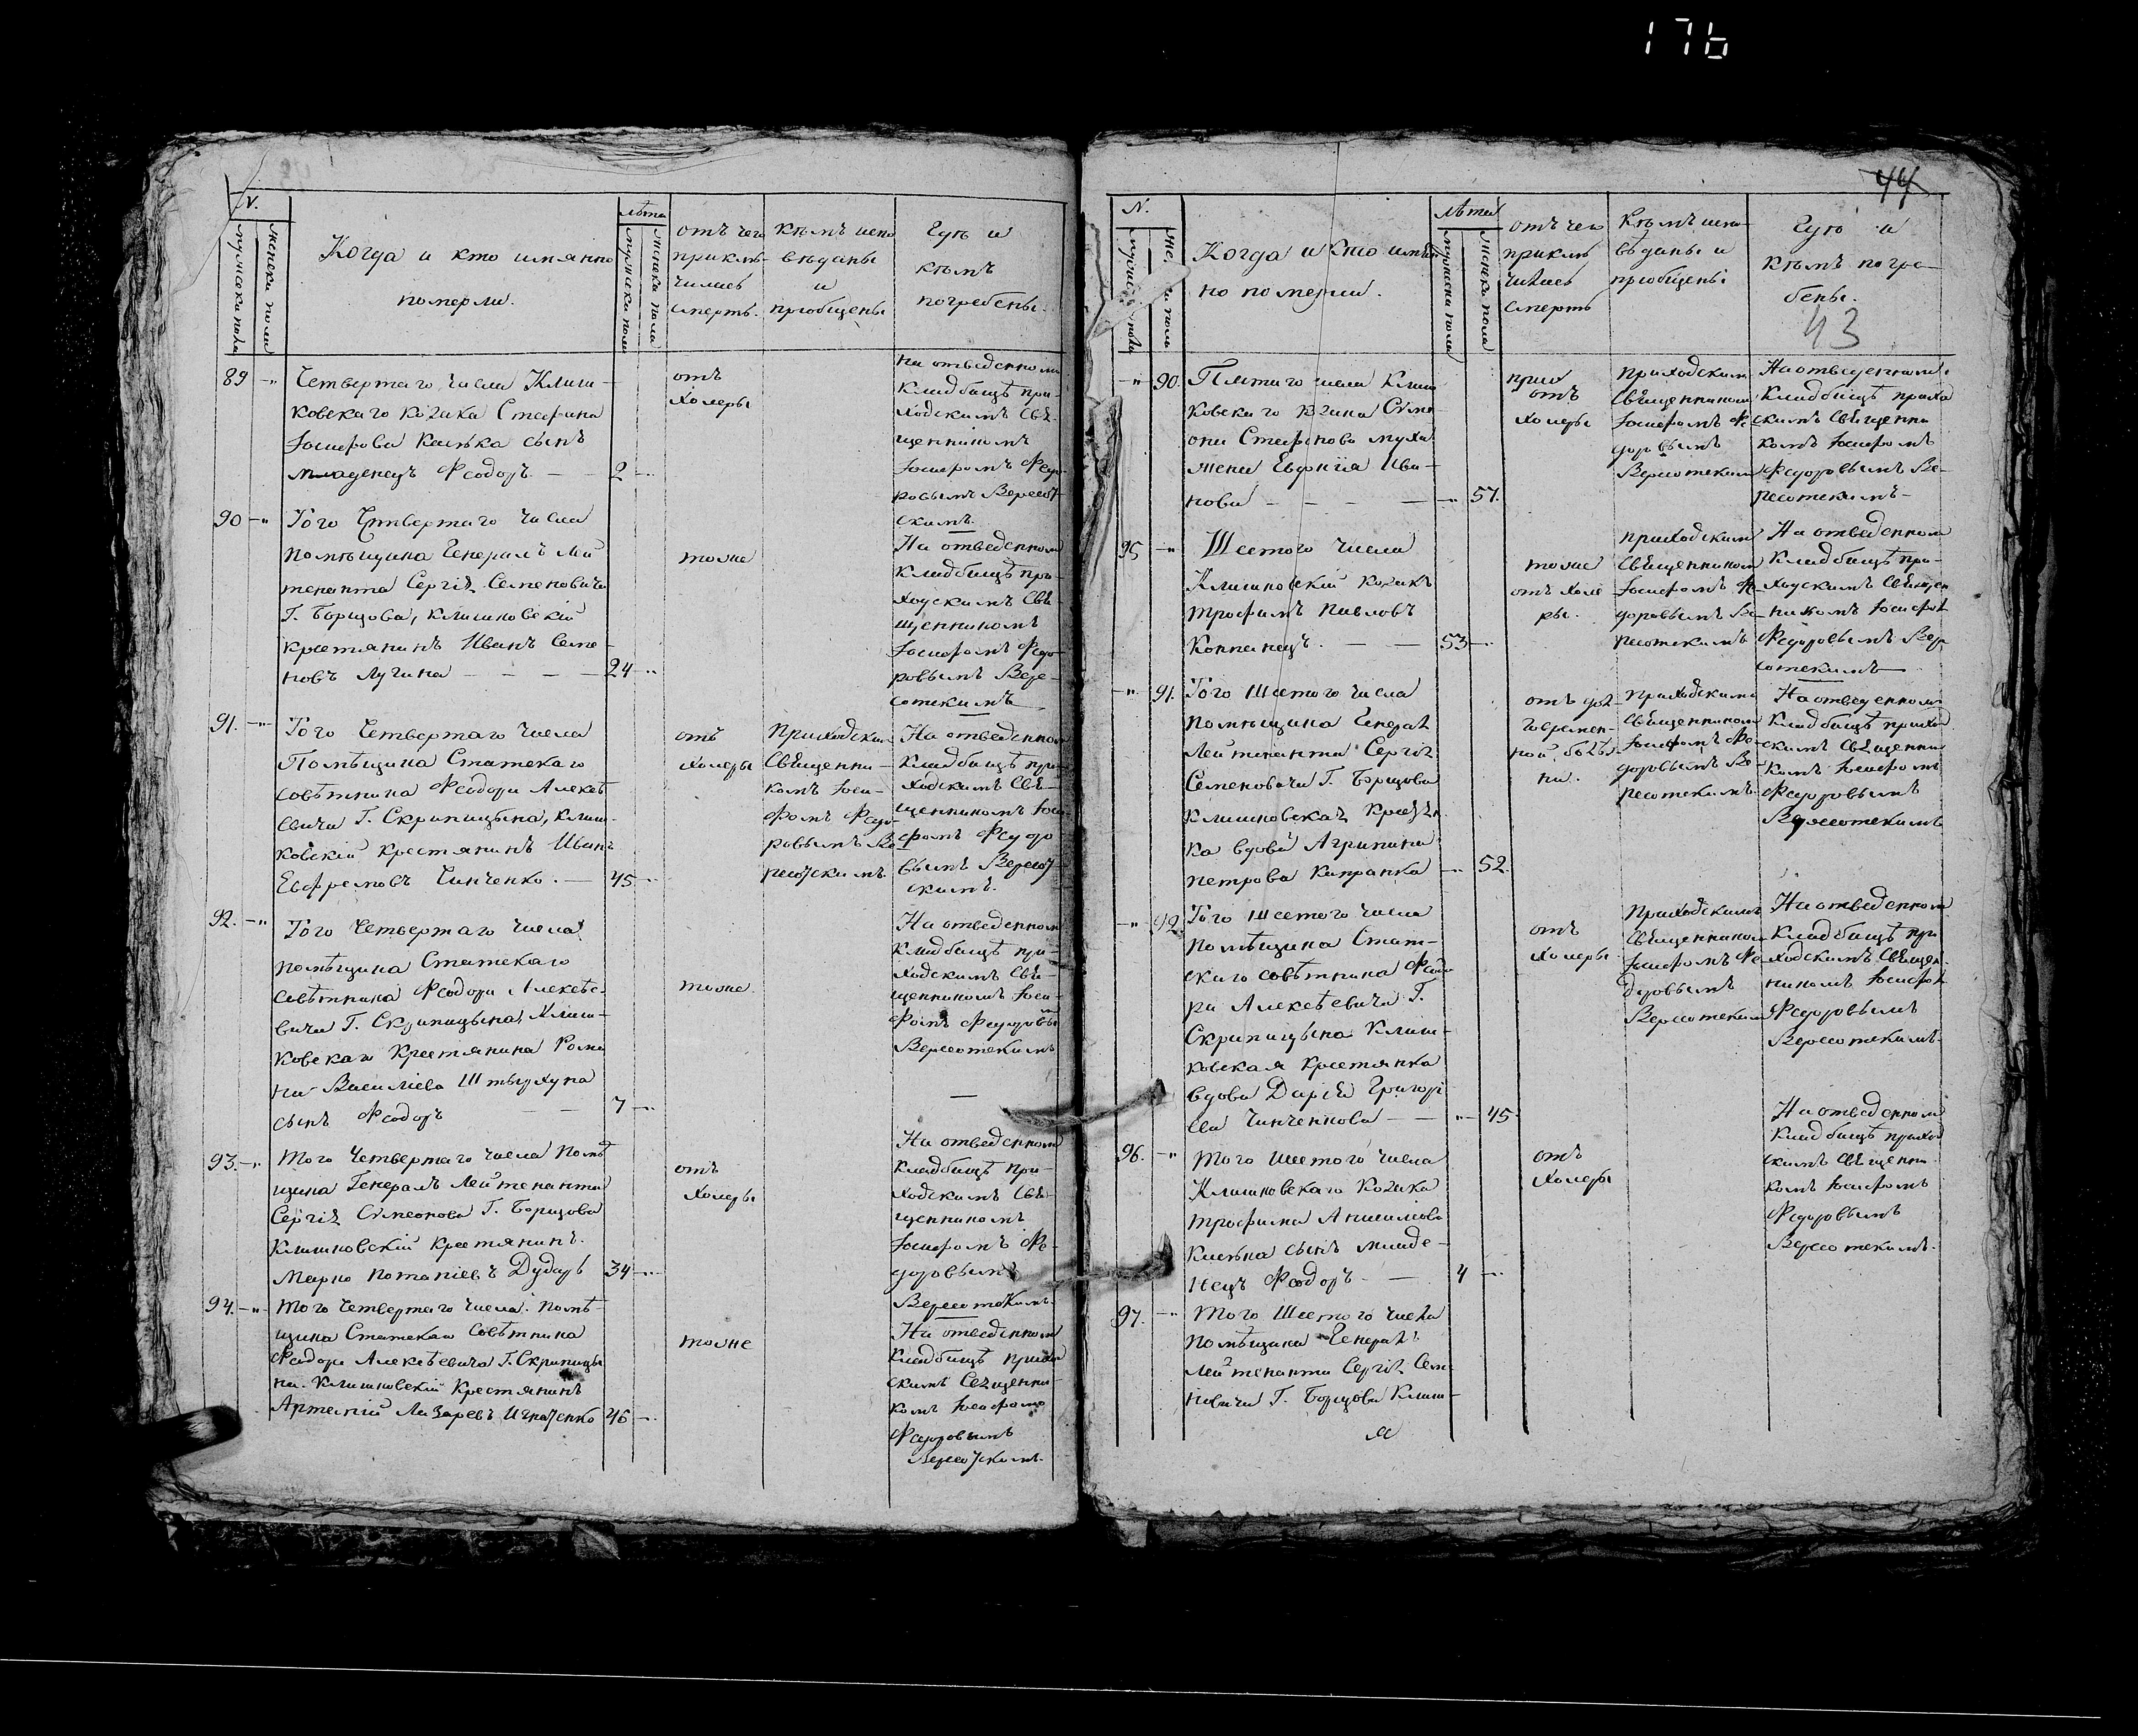 176
N.
мужеска пола
женска пола
Когда и кто имянно
померли.
лѣта
мужеска пола
женска пола
отъ чего
приклю-
чилась
смерть.
кѣмъ испо
вѣданы
и
приобщены
Гдѣ и
кѣмъ
погребены.
89 -"
Четвертаго числа Клиш-
ковскаго козака Стефана
Іосифова Касяка сынъ
младенецъ Феодоръ — 2 -"
отъ
холеры
на отведенномъ
кладбищѣ при-
ходскимъ Свя-
щенникомъ
Іосифомъ Федо-
ровымъ Вересот-
скимъ.
90 -"
Того Четвертаго числа
помѣщика Генералъ Лей
тенанта Сергія Семеновича
Г. Борщова, клишковскій
крестянинъ Иванъ Семе-
новъ Лугина — — — — 24 -"
тоже
На отведенномъ
кладбищѣ при-
ходскимъ Свя-
щенникомъ
Іосифомъ Федо-
ровымъ Вере-
сотскимъ
91. -"
Того Четвертаго числа
Помѣщика Статскаго
совѣтника Феодора Алексѣ
евича Г. Скрипицына, Клиш-
ковскій крестянинъ Иванъ
Ефремовъ Чинченко. — 45 -"
отъ
холеры
Приходским
Священни-
комъ Іоси-
фомъ Федо-
ровымъ Ве
ресотскимъ
На отведенномъ
кладбищѣ при-
ходскимъ Свя-
щенникомъ Іоси-
фомъ Федоро-
вымъ Вересот-
скимъ.
92. -"
Того Четвертаго числа
помѣщика Статскаго
совѣтника Феодора Алексѣе-
вича Г. Скрипицына, Клиш-
ковскаго Крестянина Рома
на Василіева Штырхуна
сынъ Феодоръ — — 7 -"
тоже
На отведенномъ
кладбищѣ при-
ходскимъ Свя-
щенникомъ Іоси-
фомъ Федоровы
Вересотскимъ
93. -"
Того Четвертаго числа Помѣ
щика Генералъ Лейтенанта
Сергія Симеонова Г. Борщова
Клишковскій Крестянинъ
Марко Потапіевъ Дударь 34 -"
отъ
холеры
На отведенномъ
кладбищѣ при-
ходскимъ Свя-
щенникомъ
Іосифомъ Фе-
доровымъ
Вересотскимъ
94. -"
Того Четвертаго числа. Помѣ-
щика Статскаго Совѣтника
Феодора Алексѣевича Г. Скрипицы
на. Клишковскій Крестянинъ
Артемій Лазаревъ Игнатенко 46 -"
тоже
На отведенномъ
кладбищѣ приход
скимъ Священни-
комъ Іосифомъ
Федоровымъ
Вересотскимъ.
44
N.
Когда и кто имян
но померли.
лѣта
мужеска пола
женска пола
отъ чего
приклю
чилась
смерть
Кѣмъ испо
вѣданы и
приобщены
Гдѣ и
кѣмъ погре-
бены.
43
-" 90.
Пятаго числа Клиш
ковскаго козака Симе
она Стефанова
жена Евфкіа Ива-
нова — — — — -" 57.
отъ
холеры
приходским
Священникомъ
Іосифомъ Фе
доровымъ
Вересотским
На отведенномъ
Кладбищѣ прихо
скимъ Священни
комъ Іосифомъ
Федоровымъ Ве-
ресотскимъ-
95 -"
Шестого числа
Клишковскій козакъ
Трофимъ Павловъ
Коппанецъ. — — 53 -"
тоже
отъ холе
ры.
приходским
Священником
Іосифомъ Фе-
доровымъ Ве-
ресотскимъ
На отведенномъ
Кладбищѣ при-
ходскимъ Священ
никомъ Іосифом
Федоровымъ Вере
сотскимъ
-" 91.
Того Шестого числа
Помѣщика Генерал
Лейтенанта Сергія
Семеновича Г. Борщова
Клишковская Крестян
ка вдова Агрипина
Петрова Капранка -" 52.
отъ дол
говремен-
ной болѣз
ни.
Приходским
Священникомъ
Іосифомъ Фе-
доровымъ Ве-
ресотскимъ
На отведенномъ
Кладбищѣ приход
скимъ Священни
комъ Іосифомъ
Федоровымъ
Вересотскимъ
-" 92.
Того Шестого числа
Помѣщика Стат-
скаго совѣтника Феодо
ра Алексѣевича Г.
Скрипицына Клиш-
ковская Крестянка
вдова Дарія Григорі
ева Чинченкова — -" 45.
отъ
холеры
Приходскимъ
Священником
Іосифомъ Фе-
доровымъ
Вересотским
На отведенномъ
Кладбищѣ при
ходскимъ Священ
никомъ Іосифом
Федоровымъ
Вересотскимъ.
96. -"
Того Шестого числа
Клишковскаго Козака
Трофима Анисимова
Касяка сынъ младе-
нецъ Феодоръ — 4 -"
отъ
холеры
На отведенномъ
Кладбищѣ приход
скимъ Священни
комъ Іосифомъ
Федоровымъ
Вересотскимъ.
97. -"
Того Шестого числа
помѣщика Генерал
Лейтенанта Сергія Семе
новича Г. Борщова Клиш-